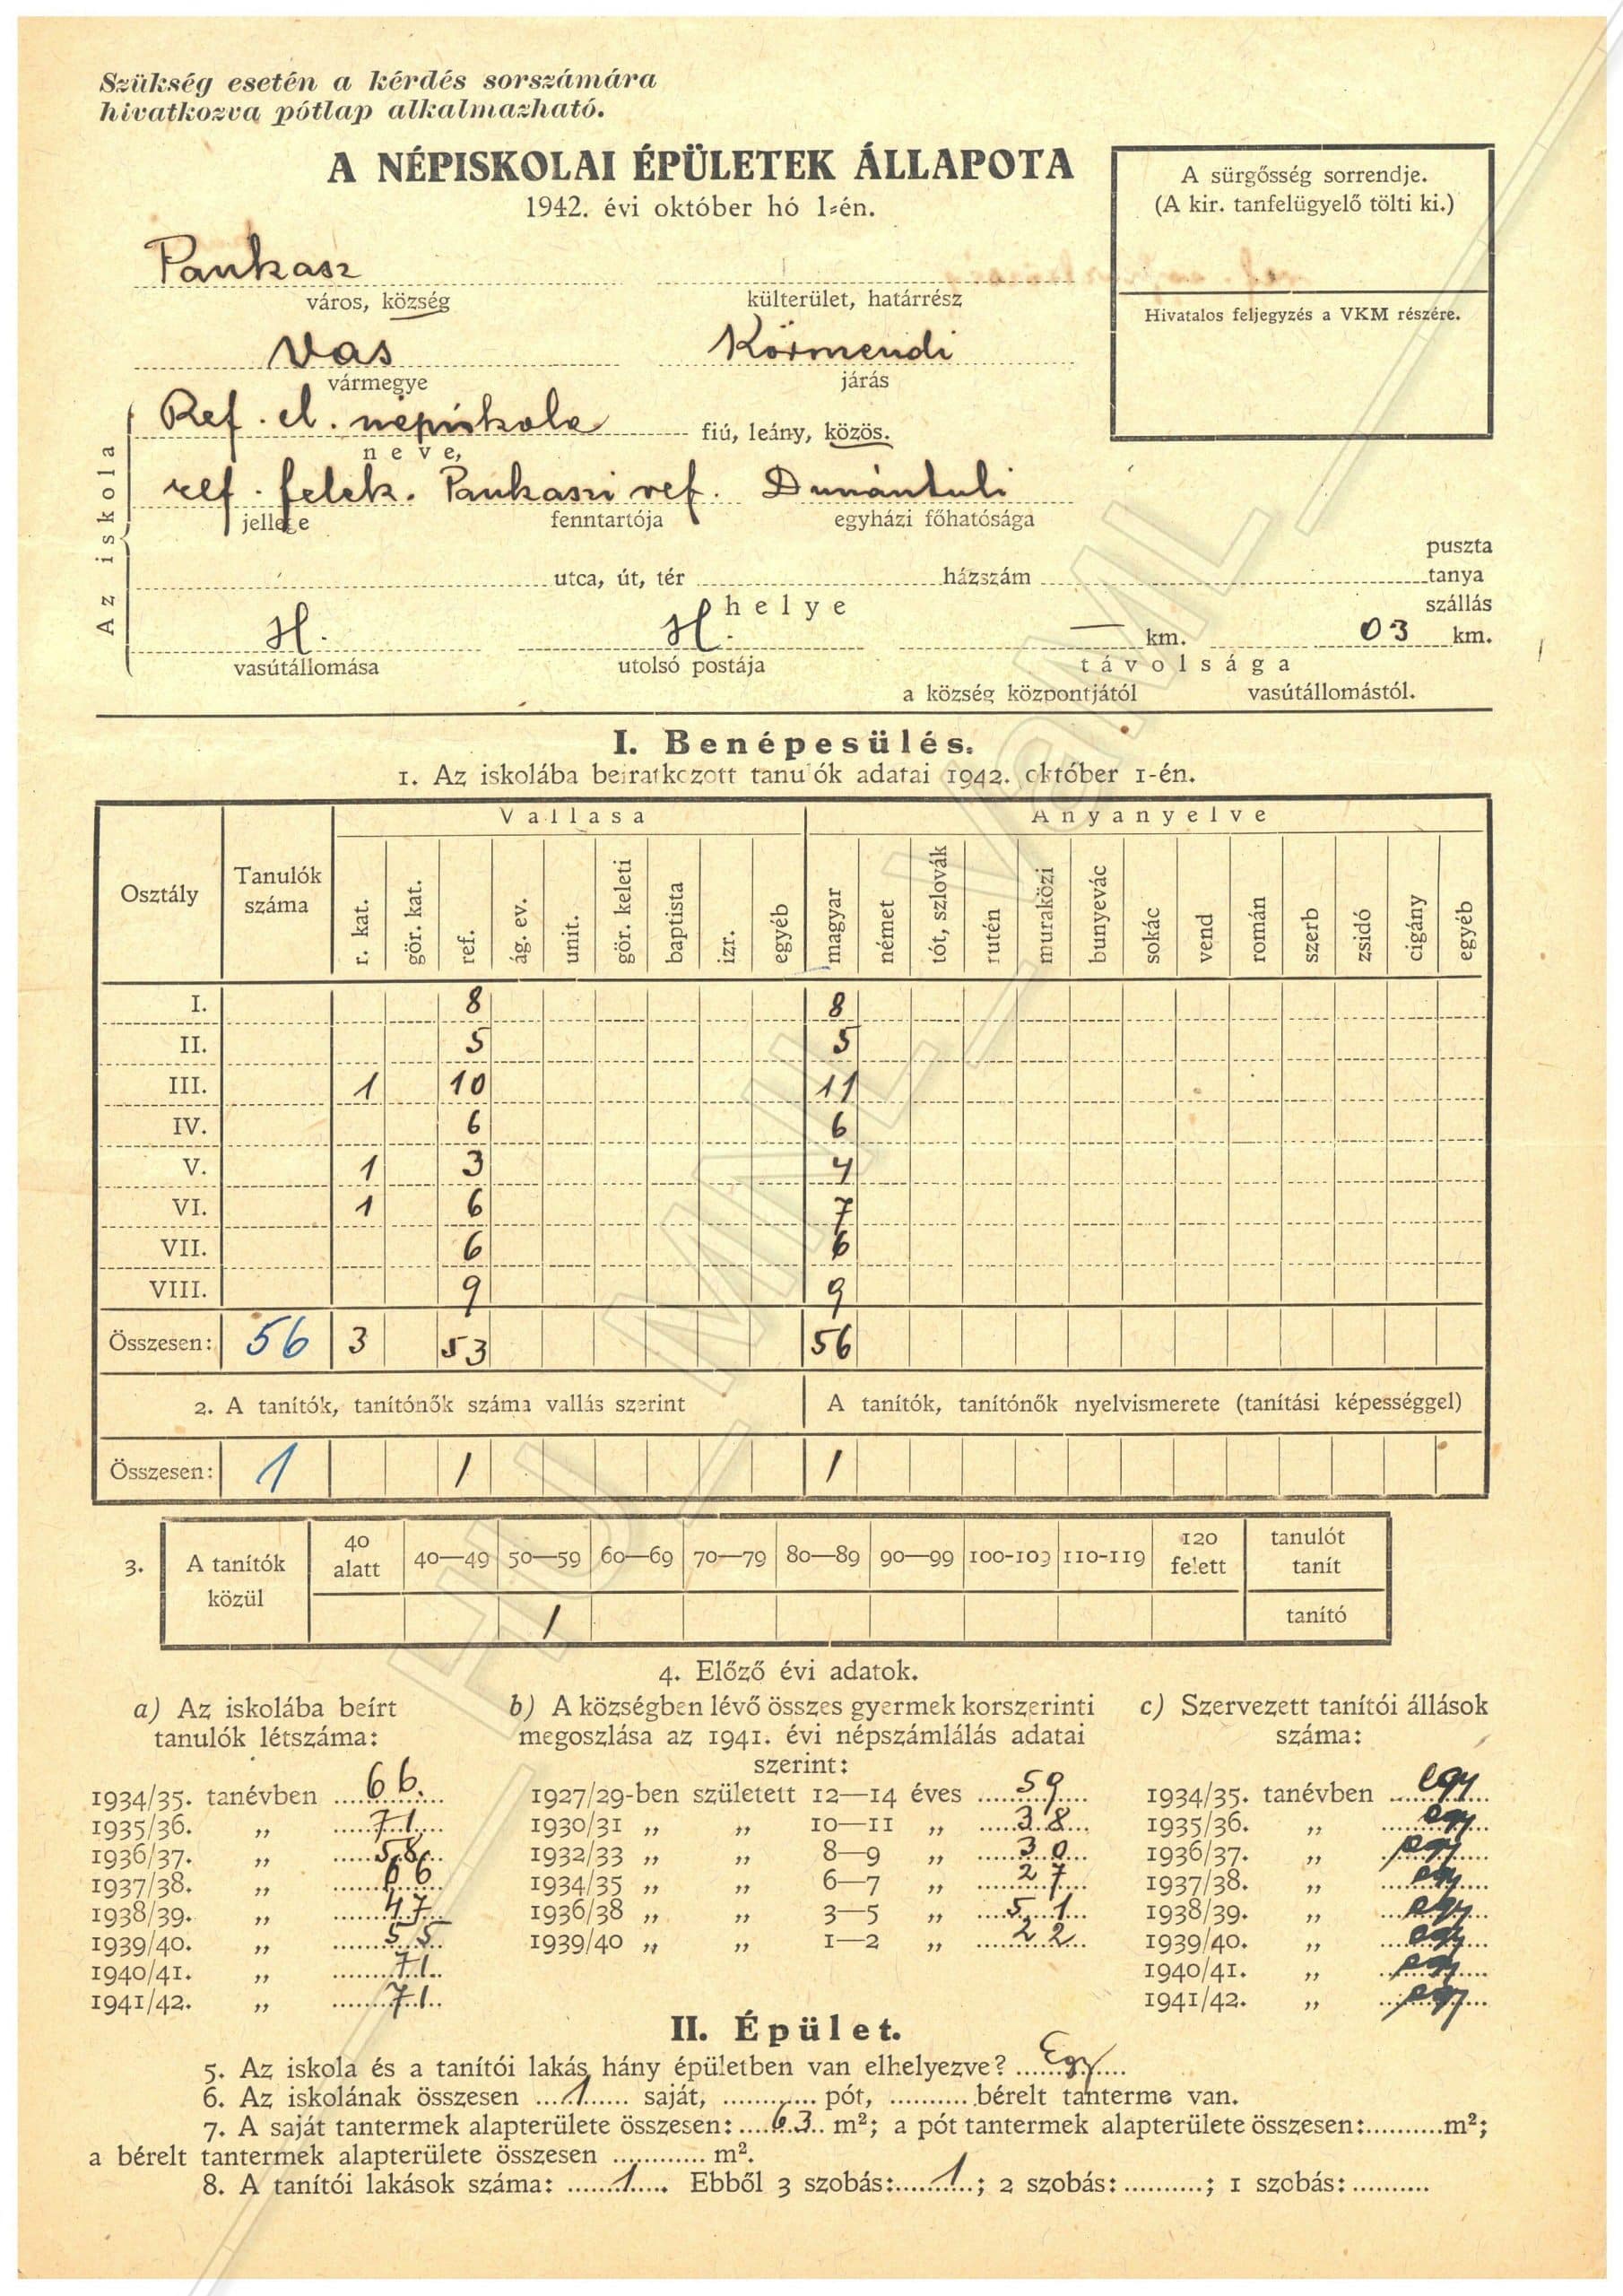 Szükség esetén a kérdés sorszámára
hivatkozva pótlap alkalmazható.
A NÉPISKOLAI ÉPÜLETEK ÁLLAPOTA
1942. évi október hó 1-én.
A sürgősség sorrendje.
(A kir. tanfelügyelő tölti ki.)
Hivatalos feljegyzés a VKM részére.
Pankasz
város, község
külterület, határrész
Vas
vármegye
Körmendi
járás
Az iskola
Ref. el. népiskola fiú, leány, közös.
neve,
ref. felek. Pankaszi ref. Dunántuli
jellege fenntartója egyházi főhatósága
utca, út, tér házszám puszta tanya szállás
helye
H. H. — km. 03 km.
vasútállomása utolsó postája távolsága
a község központjától vasútállomástól.
I. Benépesülés.
1. Az iskolába beiratkozott tanulók adatai 1942. október 1-én.
Osztály Tanulók száma Vallása Anyanyelve
r. kat. gör. kat. ref. ág. ev. unit. gör. keleti baptista izr. egyéb magyar német tót, szlovák rutén muraközi bunyevác sokác vend román szerb zsidó cigány egyéb
I. 8 8
II. 5 5
III. 1 10 11
IV. 6 6
V. 1 3 4
VI. 1 6 7
VII. 6 6
VIII. 9 9
Összesen: 56 3 53 56
2. A tanítók, tanítónők száma vallás szerint A tanítók, tanítónők nyelvismerete (tanítási képességgel)
Összesen: 1 1 1
3. A tanítók közül 40 alatt 40—49 50—59 60—69 70—79 80—89 90—99 100-109 110-119 120 felett tanulót tanít
1 tanító
4. Előző évi adatok.
a) Az iskolába beírt
tanulók létszáma:
1934/35. tanévben 66.
1935/36. „ 71
1936/37. „ 58
1937/38. „ 66
1938/39. „ 47
1939/40. „ 55
1940/41. „ 71
1941/42. „ 71
b) A községben lévő összes gyermek korszerinti
megoszlása az 1941. évi népszámlálás adatai
szerint:
1927/29-ben született 12—14 éves 59
1930/31 „ „ 10—11 „ 38
1932/33 „ „ 8—9 „ 30
1934/35 „ „ 6—7 „ 27
1936/38 „ „ 3—5 „ 51
1939/40 „ „ 1—2 „ 22
c) Szervezett tanítói állások
száma:
1934/35. tanévben egy
1935/36. „ egy
1936/37. „ egy
1937/38. „ egy
1938/39. „ egy
1939/40. „ egy
1940/41. „ egy
1941/42. „ egy
II. Épület.
5. Az iskola és a tanítói lakás hány épületben van elhelyezve? Egy
6. Az iskolának összesen 1 saját, pót, bérelt tanterme van.
7. A saját tantermek alapterülete összesen: 63 m²; a pót tantermek alapterülete összesen: m²;
a bérelt tantermek alapterülete összesen m².
8. A tanítói lakások száma: 1. Ebből 3 szobás: 1; 2 szobás: ; 1 szobás:
HU_MNL_VaML